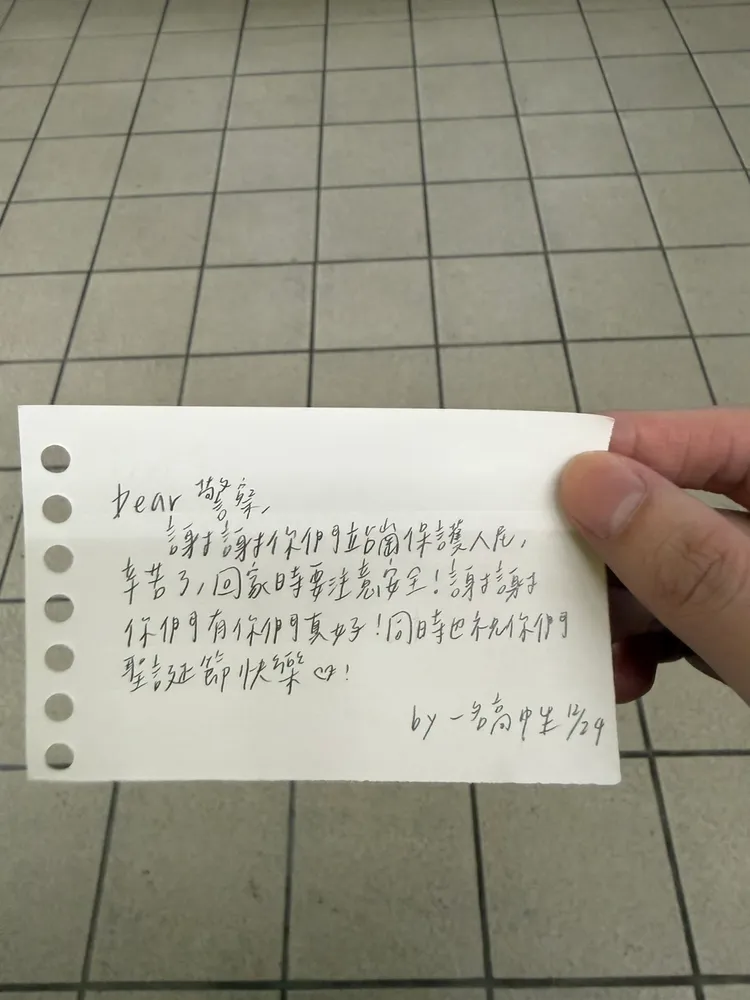 Dear 警察,
謝謝你們站崗保護人民,
辛苦了,回家時要注意安全!謝謝
你們有你們真好!同時也祝你們
聖誕節快樂♡!
by 一名高中生 12/24